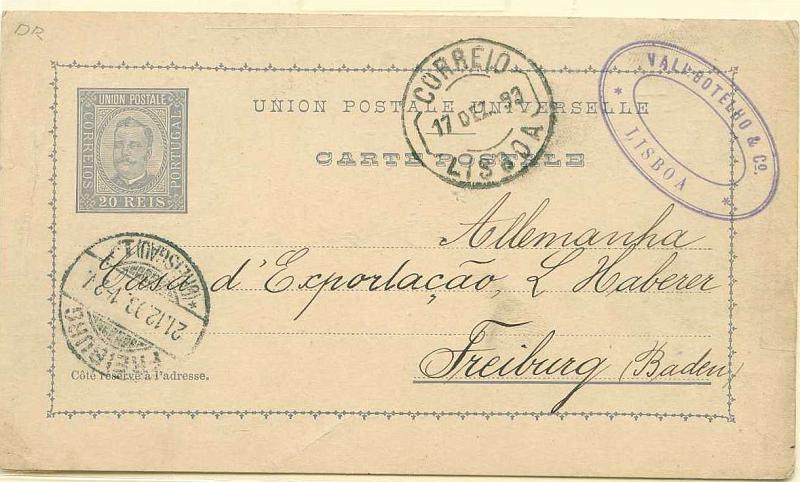 DR
UNION POSTALE UNIVERSELLE
CARTE POSTALE
UNION POSTALE
CORREIOS
PORTUGAL
20 REIS
CORREIO
17 DEZ. 93
LISBOA
VALL BOTELHO & Co.
* LISBOA *
Allemanha
Casa d'Exportação, L Haberer
Freiburg (Baden)
FREIBURG
21.12.93. 1-2 N.
* (BREISGAU) 1.
Côté réservé à l'adresse.